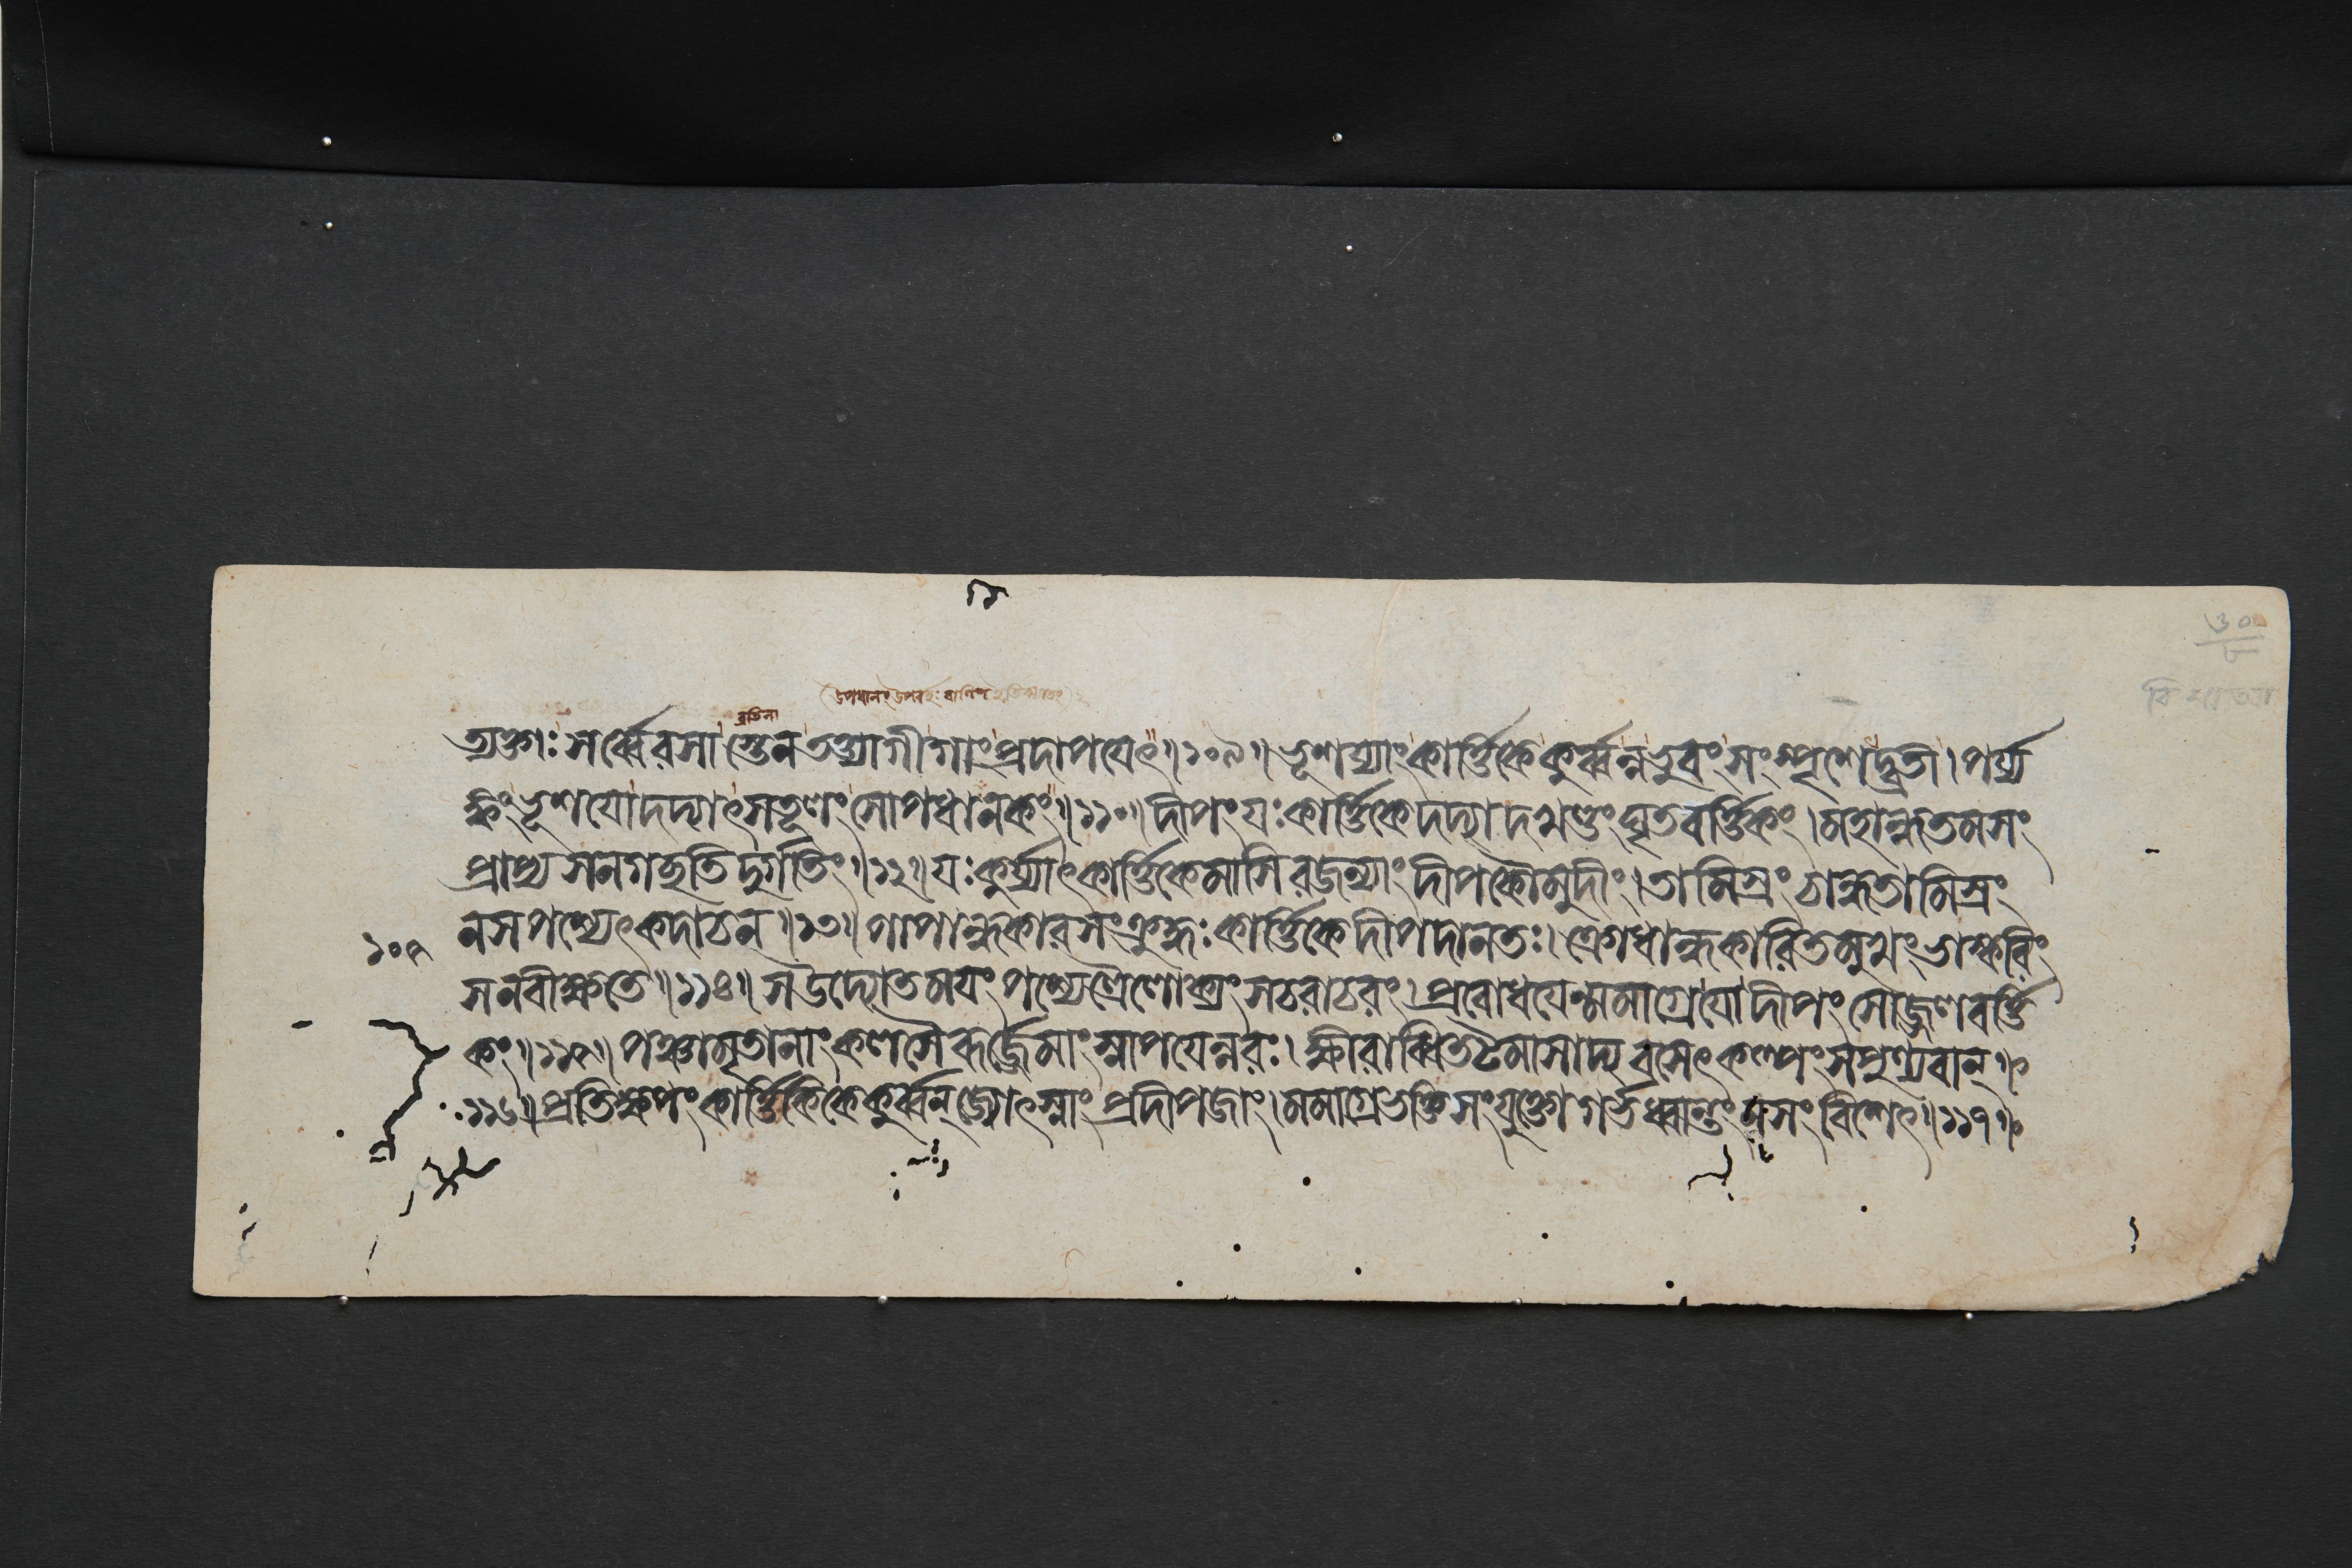 ব্রতিনা
ত্যক্তাঃ সর্ব্বে রসা স্তেন তস্মাদ্গীতাং প্রদাপয়েৎ ॥ ১০৯ ॥ ভূশয্যাং কার্ত্তিকে কুর্ব্বন্নভুবং সংস্পৃশেদ্ব্রতী । পর্য্য
ঙ্কং ভূশয়ো দদ্যাৎ সতূলং সোপধানকং ॥ ১১০ ॥ দীপং যঃ কার্ত্তিকে দদ্যাদখণ্ডং ঘৃতবর্ত্তিকং । মহান্ধতমসং
প্রাপ্য সনগচ্ছতি দুর্গতিং ॥ ১২ ॥ যঃ কুর্য্যাৎ কার্ত্তিকে মাসি রজন্যাং দীপকৌমুদীং । তামিস্রং চান্ধতামিস্রং
নস পশ্যেৎ কদাচন ॥ ১৩ ॥ পাপান্ধকার সংক্রুদ্ধঃ কার্ত্তিকে দীপদানতঃ । ক্রোধান্ধকারিতমুখং ভাস্করিং
সনবীক্ষতে ॥ ১১৪ ॥ সউদ্যোতময়ং পশ্যেত্ত্রৈলোক্যং সচরাচরং । প্রবোধয়েন্মমাগ্রে যো দীপং সোজ্জ্বলবর্ত্তি
কং ॥ ১১৫ ॥ পঞ্চামৃতানাং কলসৈরূর্জ্জে মাং স্নাপয়েন্নরঃ । ক্ষীরাব্ধিতটমাসাদ্য বসেৎ কল্পং সপুণ্যবান্ ॥
১০৫
১১৬ ॥ প্রতিক্ষপং কার্ত্তিকিকে কুর্ব্বন্ জ্যোৎস্নাং প্রদীপজাং । মমাগ্রে ভক্তিসংযুক্তো গর্ভধ্বান্তং নসং বিশেৎ ॥ ১১৭ ॥